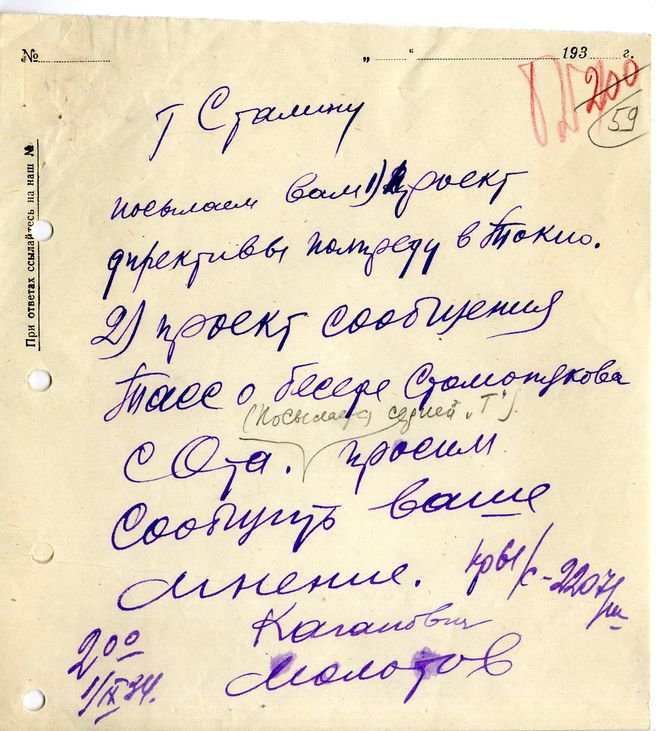 №
„ “ 193 г.
200
59
При ответах ссылайтесь на наш №
т Сталину
посылаем вам 1) проект
директивы полпреду в Токио.
2) проект сообщения
Тасс о беседе Стомонякова
(Посылается серией „Т“).
с Ота. просим
сообщить ваше
мнение.
Каганович
Молотов
2 00
1/IX 34.